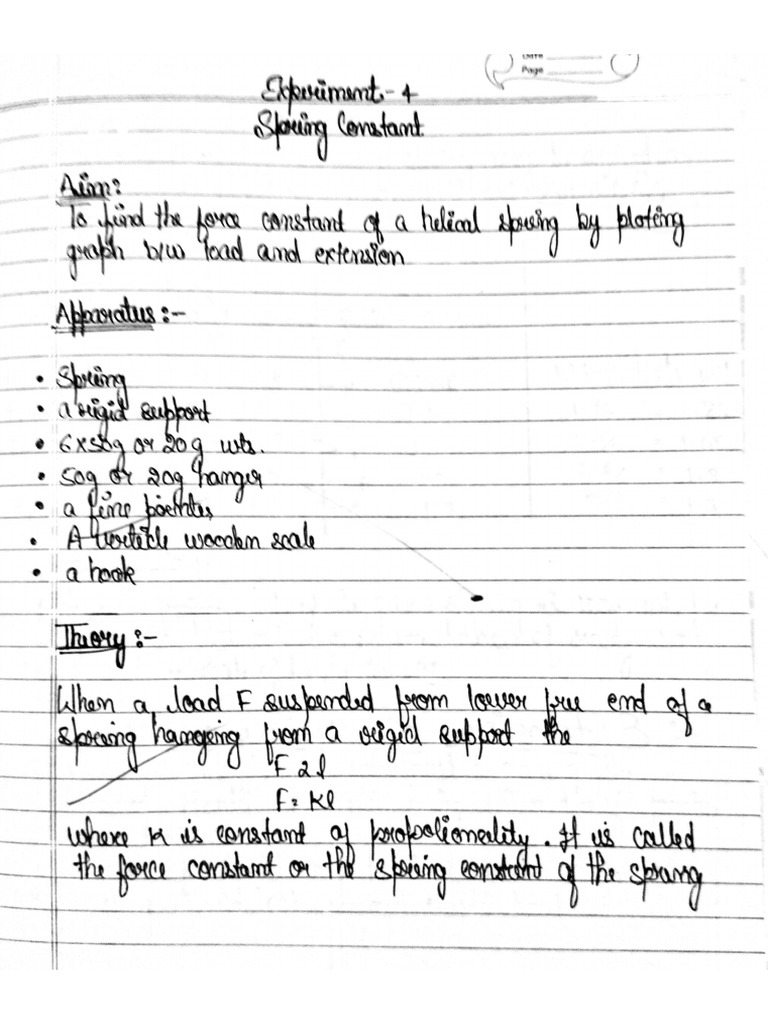 Page
Experiment - 4
Spring Constant
Aim:
To find the force constant of a helical spring by ploting
graph b/w load and extension
Apparatus :-
• Spring
• a rigid support
• 6x50g or 20g wts.
• 50g or 20g hanger
• a fine pointer
• A verticle wooden scale
• a hook
Theory :-
When a load F suspended from lower free end of a
spring hanging from a rigid support the
F α l
F = Kl
where K is constant of propotionality. It is called
the force constant or the spring constant of the spring